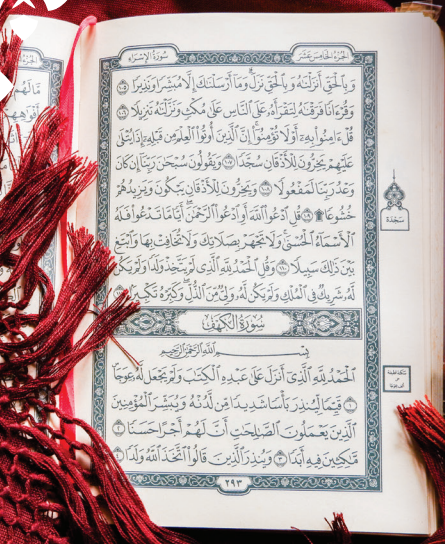 الجزء الخامس عشر
سورة الإسراء
وَبِالْحَقِّ أَنزَلْنَاهُ وَبِالْحَقِّ نَزَلَ وَمَا أَرْسَلْنَاكَ إِلَّا مُبَشِّرًا وَنَذِيرًا ١٠٥
وَقُرْءَانًا فَرَقْنَاهُ لِتَقْرَأَهُ عَلَى النَّاسِ عَلَىٰ مُكْثٍ وَنَزَّلْنَاهُ تَنزِيلًا ١٠٦
قُلْ ءَامِنُوا بِهِ أَوْ لَا تُؤْمِنُوا إِنَّ الَّذِينَ أُوتُوا الْعِلْمَ مِن قَبْلِهِ إِذَا يُتْلَىٰ
عَلَيْهِمْ يَخِرُّونَ لِلْأَذْقَانِ سُجَّدًا ١٠٧ وَيَقُولُونَ سُبْحَانَ رَبِّنَا إِن كَانَ
وَعْدُ رَبِّنَا لَمَفْعُولًا ١٠٨ وَيَخِرُّونَ لِلْأَذْقَانِ يَبْكُونَ وَيَزِيدُهُمْ
خُشُوعًا ۩ ١٠٩ قُلِ ادْعُوا اللَّهَ أَوِ ادْعُوا الرَّحْمَٰنَ أَيًّا مَّا تَدْعُوا فَلَهُ
الْأَسْمَاءُ الْحُسْنَىٰ وَلَا تَجْهَرْ بِصَلَاتِكَ وَلَا تُخَافِتْ بِهَا وَابْتَغِ
بَيْنَ ذَٰلِكَ سَبِيلًا ١١٠ وَقُلِ الْحَمْدُ لِلَّهِ الَّذِي لَمْ يَتَّخِذْ وَلَدًا وَلَمْ يَكُن
لَّهُ شَرِيكٌ فِي الْمُلْكِ وَلَمْ يَكُن لَّهُ وَلِيٌّ مِّنَ الذُّلِّ وَكَبِّرْهُ تَكْبِيرًا
سجدة
سُورَةُ الْكَهْفِ
بِسْمِ اللَّهِ الرَّحْمَٰنِ الرَّحِيمِ
الْحَمْدُ لِلَّهِ الَّذِي أَنزَلَ عَلَىٰ عَبْدِهِ الْكِتَابَ وَلَمْ يَجْعَل لَّهُ عِوَجًا
١ قَيِّمًا لِّيُنذِرَ بَأْسًا شَدِيدًا مِّن لَّدُنْهُ وَيُبَشِّرَ الْمُؤْمِنِينَ
الَّذِينَ يَعْمَلُونَ الصَّالِحَاتِ أَنَّ لَهُمْ أَجْرًا حَسَنًا ٢
مَّاكِثِينَ فِيهِ أَبَدًا ٣ وَيُنذِرَ الَّذِينَ قَالُوا اتَّخَذَ اللَّهُ وَلَدًا ٤
٢٩٣